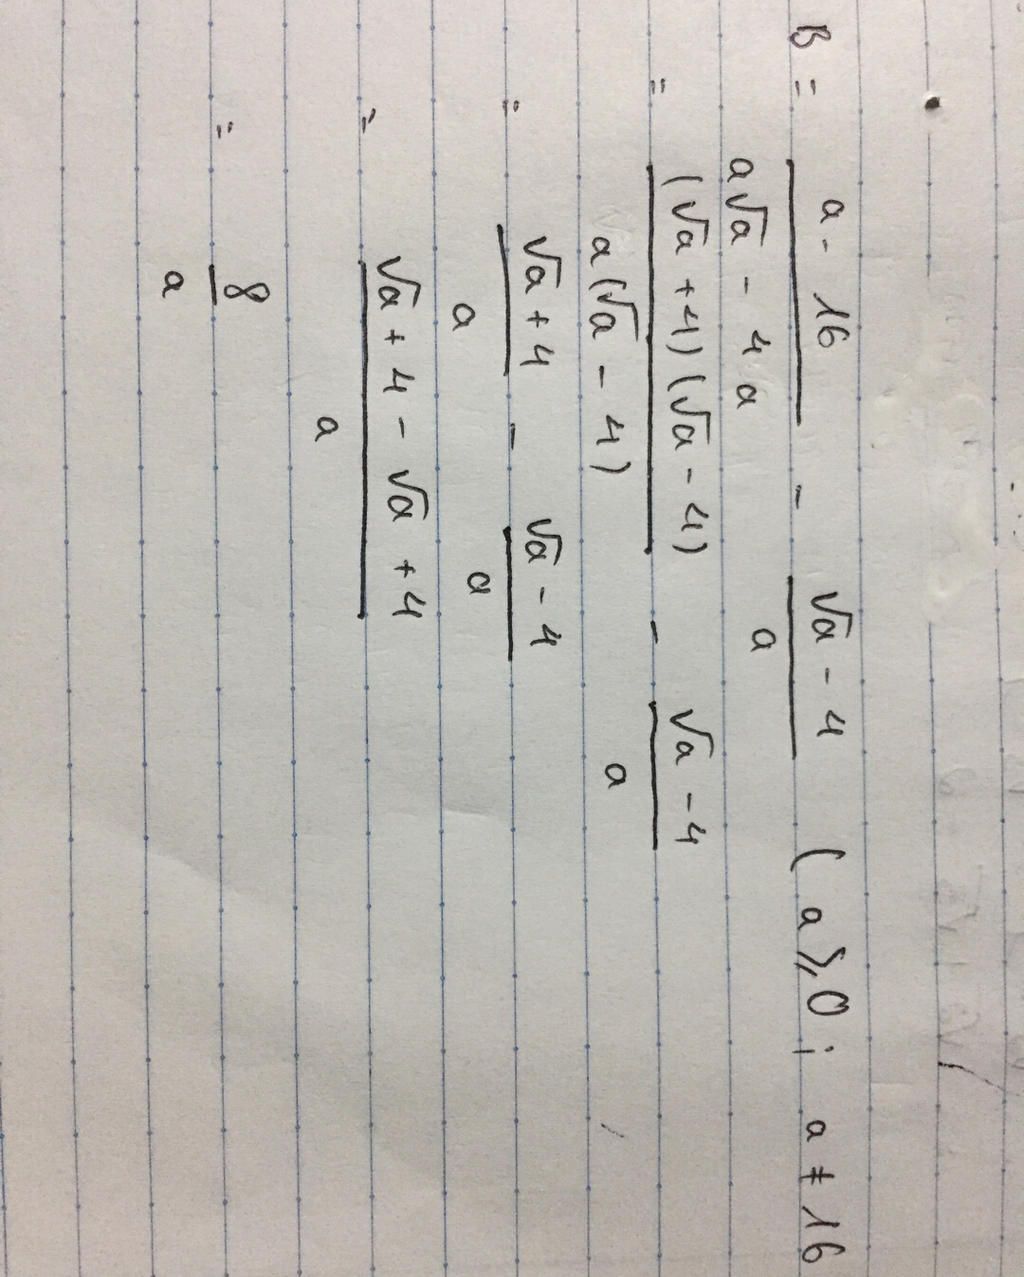 B = \frac{a - 16}{a\sqrt{a} - 4a} - \frac{\sqrt{a} - 4}{a} (a ⩾ 0 ; a ≠ 16
= \frac{(\sqrt{a} + 4)(\sqrt{a} - 4)}{a(\sqrt{a} - 4)} - \frac{\sqrt{a} - 4}{a}
= \frac{\sqrt{a} + 4}{a} - \frac{\sqrt{a} - 4}{a}
= \frac{\sqrt{a} + 4 - \sqrt{a} + 4}{a}
= \frac{8}{a}